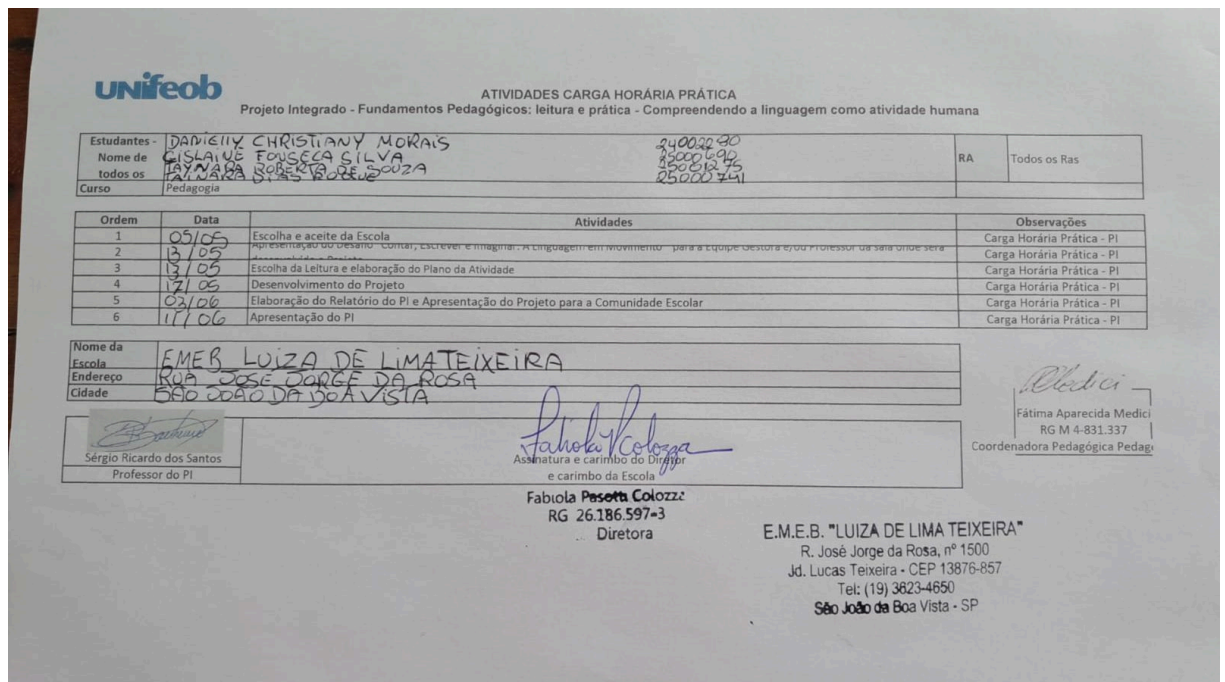 unifeob
ATIVIDADES CARGA HORÁRIA PRÁTICA
Projeto Integrado - Fundamentos Pedagógicos: leitura e prática - Compreendendo a linguagem como atividade humana
Estudantes - Nome de todos os
DANIELLY CHRISTIANY MORAIS 24002290
GISLAINE FONSECA SILVA 25000690
TAYNARA ROBERTA DE SOUZA 25001275
TAINARA DIAS 25000741
RA Todos os Ras
Curso Pedagogia
Ordem Data Atividades Observações
1 05/05 Escolha e aceite da Escola Carga Horária Prática - PI
2 13/05 Apresentação do Desafio "Contar, Escrever e Imaginar: A Linguagem em Movimento" para a Equipe Gestora e/ou Professor da sala onde será Carga Horária Prática - PI
3 13/05 Escolha da Leitura e elaboração do Plano da Atividade Carga Horária Prática - PI
4 17/05 Desenvolvimento do Projeto Carga Horária Prática - PI
5 03/06 Elaboração do Relatório do PI e Apresentação do Projeto para a Comunidade Escolar Carga Horária Prática - PI
6 11/06 Apresentação do PI Carga Horária Prática - PI
Nome da Escola EMEB LUIZA DE LIMA TEIXEIRA
Endereço RUA JOSE JORGE DA ROSA
Cidade SÃO JOÃO DA BOA VISTA
Medici
Fátima Aparecida Medici
RG M 4-831.337
Coordenadora Pedagógica Pedag
Sérgio Ricardo dos Santos
Professor do PI
Fabiola Colozza
Assinatura e carimbo do Diretor
e carimbo da Escola
Fabiola Pasotti Colozza
RG 26.186.597-3
Diretora
E.M.E.B. "LUIZA DE LIMA TEIXEIRA"
R. José Jorge da Rosa, nº 1500
Jd. Lucas Teixeira - CEP 13876-857
Tel: (19) 3623-4650
São João da Boa Vista - SP